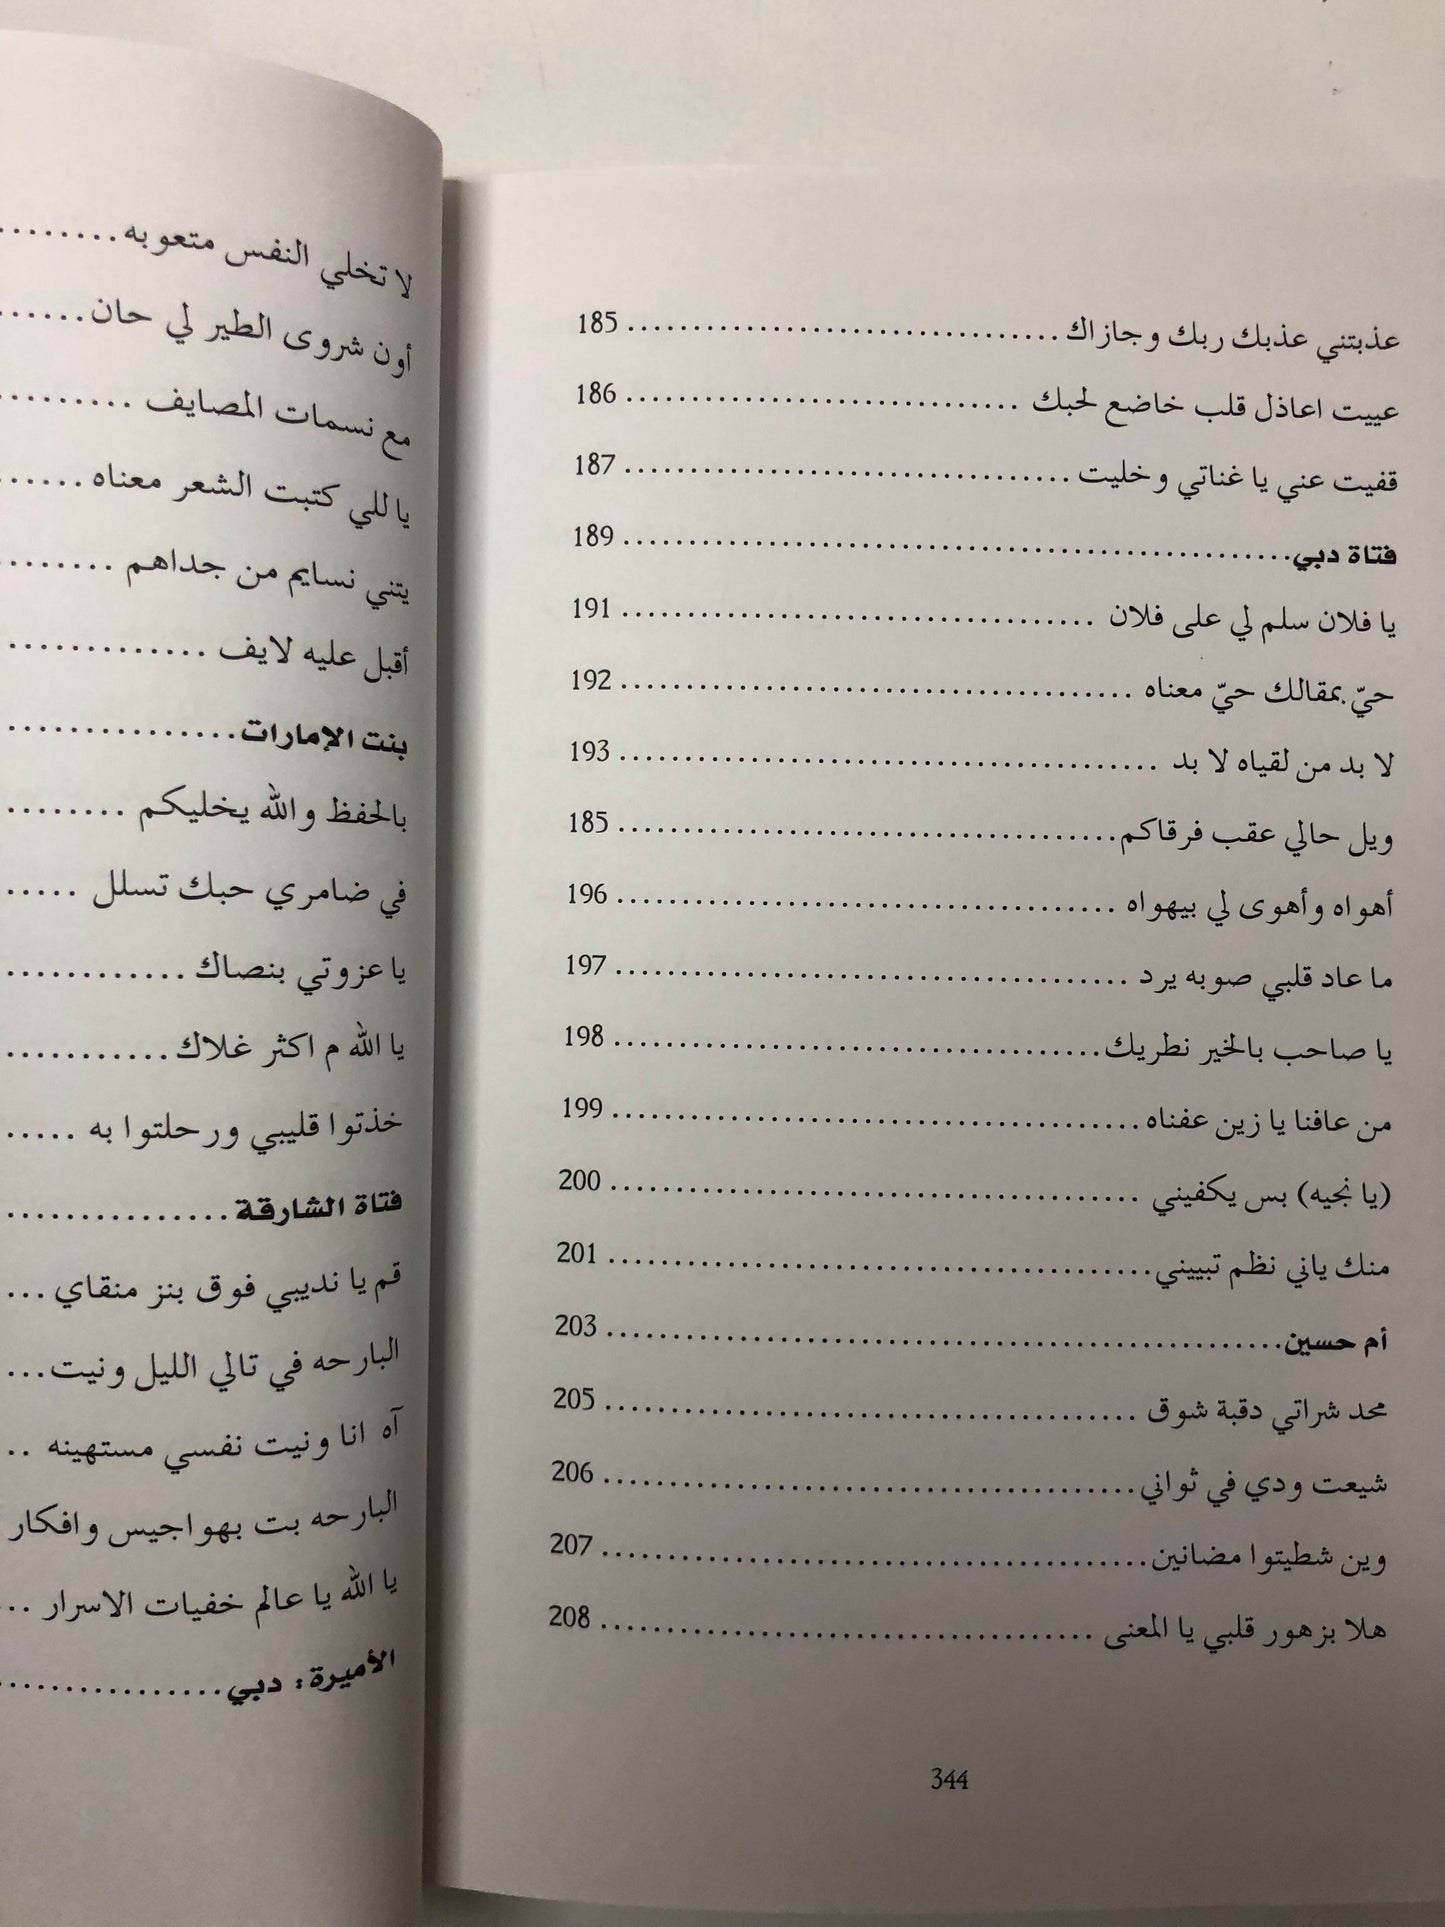 عذبتني عذبك ربك وجازاك .................................. 185
عييت اعاذل قلب خاضع لحبك .............................. 186
قفيت عني يا غناتي وخليت .................................. 187
فتاة دبي .................................................. 189
يا فلان سلم لي على فلان .................................... 191
حيّ بمقالك حيّ معناه ....................................... 192
لا بد من لقياه لا بد ......................................... 193
ويل حالي عقب فرقاكم ...................................... 185
أهواه وأهوى لي بيهواه ...................................... 196
ما عاد قلبي صوبه يرد ....................................... 197
يا صاحب بالخير نطريك ..................................... 198
من عافنا يا زين عفناه ........................................ 199
(يا نجيه) بس يكفيني ........................................ 200
منك ياني نظم تبييني ......................................... 201
أم حسين .................................................. 203
محد شراتي دقبة شوق ........................................ 205
شيعت ودي في ثواني ........................................ 206
وين شطيتوا مضانين ......................................... 207
هلا بزهور قلبي يا المعنى ..................................... 208
344
لا تخلي النفس متعوبه ........
أون شروى الطير لي حان ......
مع نسمات المصايف .........
يا للي كتبت الشعر معناه ......
يتني نسايم من جداهم ........
أقبل عليه لايف .............
بنت الإمارات ...............
بالحفظ والله يخليكم ........
في ضامري حبك تسلل .....
يا عزوتي بنصاك ............
يا الله م اكثر غلاك ...........
خذتوا قليبي ورحلتوا به .....
فتاة الشارقة ...............
قم يا نديبي فوق بنز منقاي ...
البارحه في تالي الليل ونيت ...
آه انا ونيت نفسي مستهينه ..
البارحه بت بهواجيس وافكار
يا الله يا عالم خفيات الاسرار ...
الأميرة: دبي ................